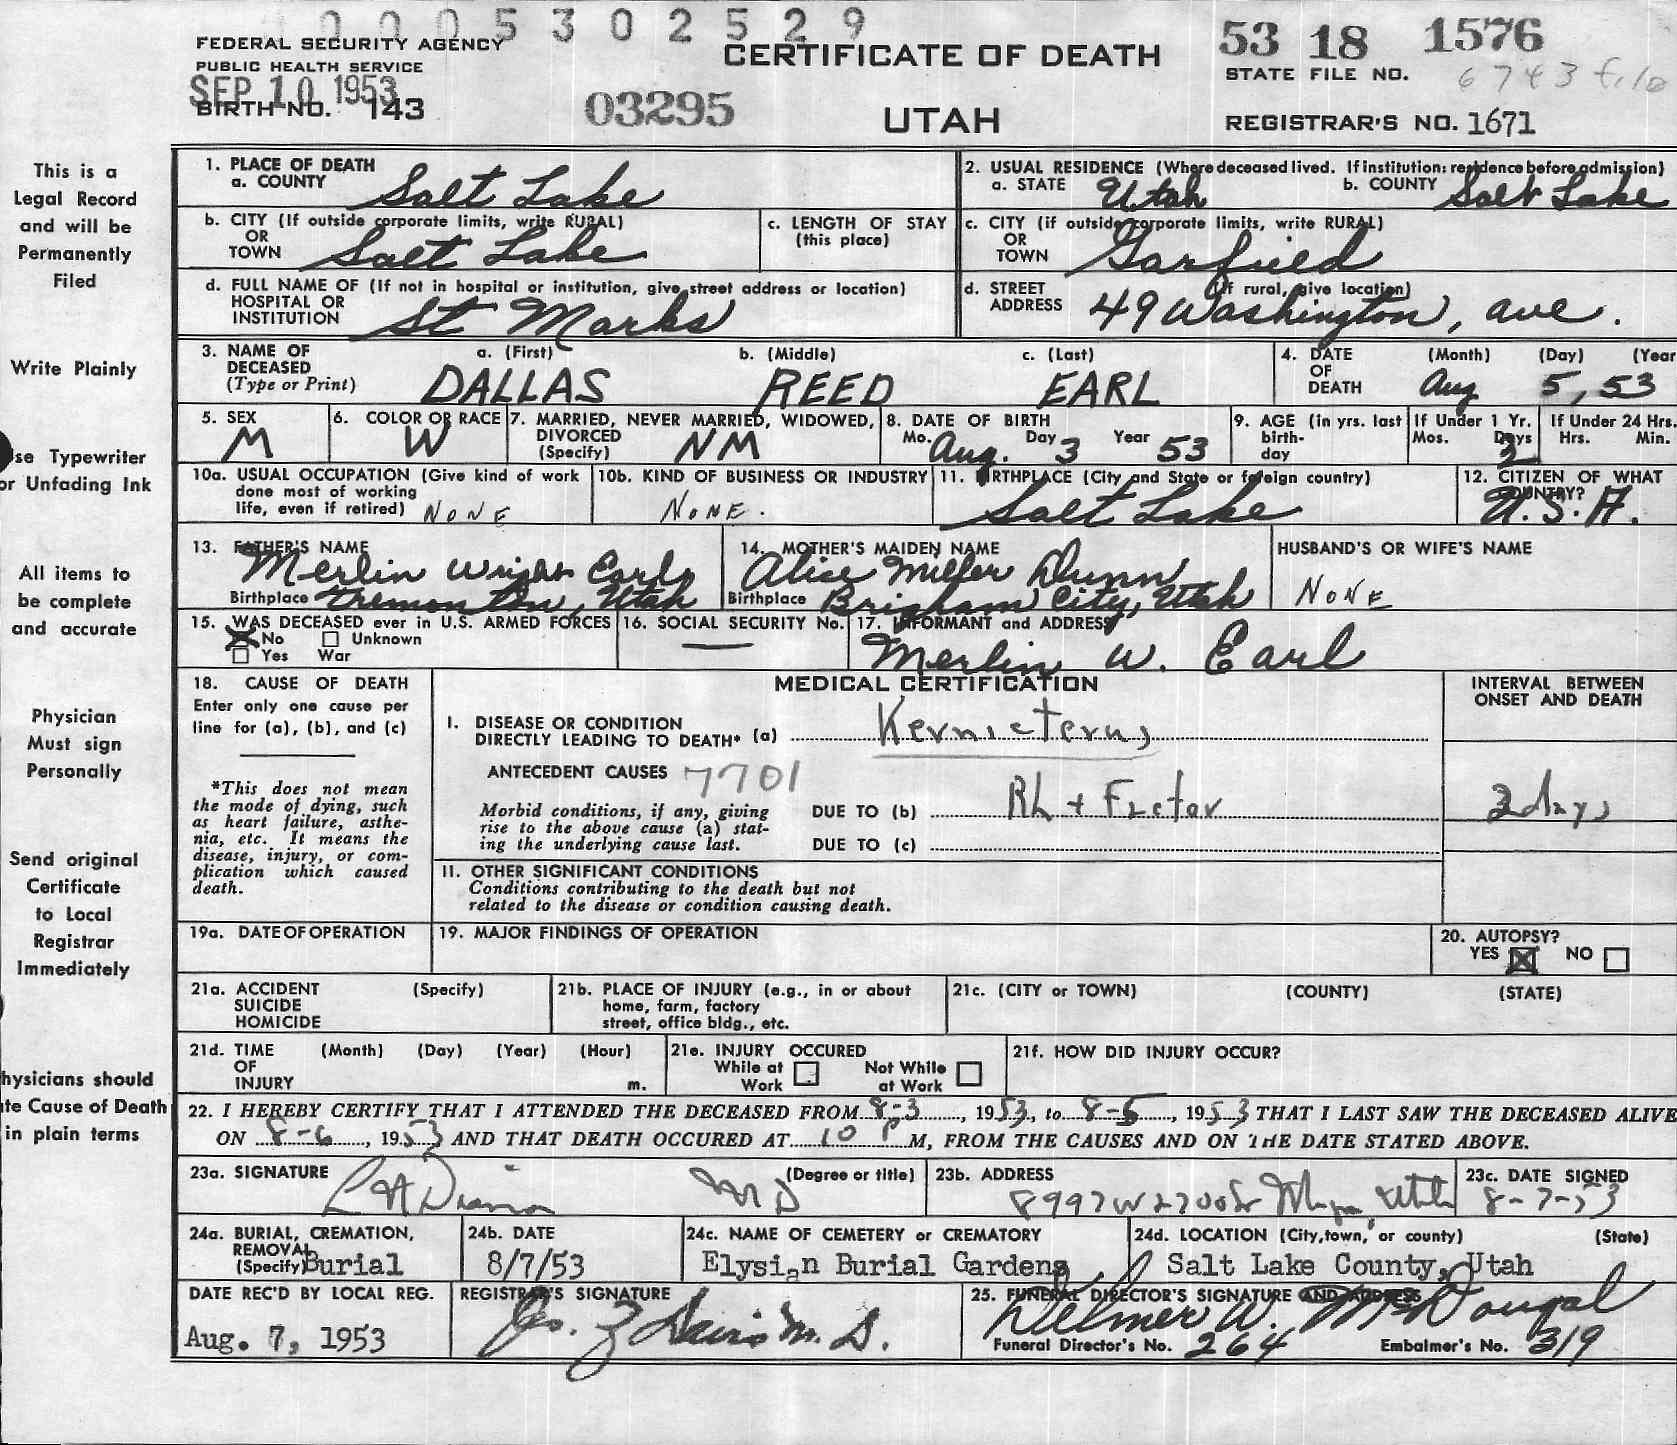 0005302529
FEDERAL SECURITY AGENCY
PUBLIC HEALTH SERVICE
SEP 10 1953
BIRTH NO. 143
03295
CERTIFICATE OF DEATH
UTAH
53 18 1576
STATE FILE NO.
6743 file
REGISTRAR'S NO. 1671
This is a
Legal Record
and will be
Permanently
Filed
Write Plainly
se Typewriter
or Unfading Ink
All items to
be complete
and accurate
Physician
Must sign
Personally
Send original
Certificate
to Local
Registrar
Immediately
hysicians should
te Cause of Death
in plain terms
1. PLACE OF DEATH
a. COUNTY Salt Lake
2. USUAL RESIDENCE (Where deceased lived. If institution: residence before admission)
a. STATE Utah b. COUNTY Salt Lake
b. CITY (If outside corporate limits, write RURAL)
OR
TOWN Salt Lake
c. LENGTH OF STAY
(this place)
c. CITY (if outside corporate limits, write RURAL)
OR
TOWN Garfield
d. FULL NAME OF (If not in hospital or institution, give street address or location)
HOSPITAL OR
INSTITUTION St Marks
d. STREET (If rural, give location)
ADDRESS 49 Washington, ave.
3. NAME OF
DECEASED
(Type or Print)
a. (First) b. (Middle) c. (Last)
DALLAS REED EARL
4. DATE
OF
DEATH
(Month) (Day) (Year
Aug 5, 53
5. SEX
M
6. COLOR OR RACE
W
7. MARRIED, NEVER MARRIED, WIDOWED,
DIVORCED
(Specify) NM
8. DATE OF BIRTH
Mo. Aug. Day 3 Year 53
9. AGE (in yrs. last
birth-
day
If Under 1 Yr.
Mos. Days
2
If Under 24 Hrs.
Hrs. Min.
10a. USUAL OCCUPATION (Give kind of work
done most of working
life, even if retired) NONE
10b. KIND OF BUSINESS OR INDUSTRY
NONE.
11. BIRTHPLACE (City and State or foreign country)
Salt Lake
12. CITIZEN OF WHAT
COUNTRY?
U.S.A.
13. FATHER'S NAME
Merlin Wright Earl
Birthplace Tremonton, Utah
14. MOTHER'S MAIDEN NAME
Alice Miller Dunn
Birthplace Brigham City, Utah
HUSBAND'S OR WIFE'S NAME
NONE
15. WAS DECEASED ever in U.S. ARMED FORCES
No Unknown
Yes War
16. SOCIAL SECURITY No.
—
17. INFORMANT and ADDRESS
Merlin W. Earl
18. CAUSE OF DEATH
Enter only one cause per
line for (a), (b), and (c)
*This does not mean
the mode of dying, such
as heart failure, asthe-
nia, etc. It means the
disease, injury, or com-
plication which caused
death.
MEDICAL CERTIFICATION
I. DISEASE OR CONDITION
DIRECTLY LEADING TO DEATH* (a) Kernicterus
ANTECEDENT CAUSES 7701
Morbid conditions, if any, giving
rise to the above cause (a) stat-
ing the underlying cause last.
DUE TO (b) Rh + Factor
DUE TO (c)
INTERVAL BETWEEN
ONSET AND DEATH
days
II. OTHER SIGNIFICANT CONDITIONS
Conditions contributing to the death but not
related to the disease or condition causing death.
19a. DATE OF OPERATION
19. MAJOR FINDINGS OF OPERATION
20. AUTOPSY?
YES NO
21a. ACCIDENT (Specify)
SUICIDE
HOMICIDE
21b. PLACE OF INJURY (e.g., in or about
home, farm, factory
street, office bldg., etc.
21c. (CITY or TOWN) (COUNTY) (STATE)
21d. TIME (Month) (Day) (Year) (Hour)
OF
INJURY m.
21e. INJURY OCCURED
While at Not While
Work at Work
21f. HOW DID INJURY OCCUR?
22. I HEREBY CERTIFY THAT I ATTENDED THE DECEASED FROM 8-3, 1953, to 8-5, 1953 THAT I LAST SAW THE DECEASED ALIVE
ON 8-6, 1953 AND THAT DEATH OCCURED AT 10 P M, FROM THE CAUSES AND ON THE DATE STATED ABOVE.
23a. SIGNATURE (Degree or title)
MD
23b. ADDRESS
8997 W 2700 Utah
23c. DATE SIGNED
8-7-53
24a. BURIAL, CREMATION,
REMOVAL
(Specify) Burial
24b. DATE
8/7/53
24c. NAME OF CEMETERY or CREMATORY
Elysian Burial Gardens
24d. LOCATION (City, town, or county) (State)
Salt Lake County, Utah
DATE REC'D BY LOCAL REG.
Aug. 7, 1953
REGISTRAR'S SIGNATURE
Davis M. D.
25. FUNERAL DIRECTOR'S SIGNATURE AND ADDRESS
Delmer W. McDougal
Funeral Director's No. 264 Embalmer's No. 319